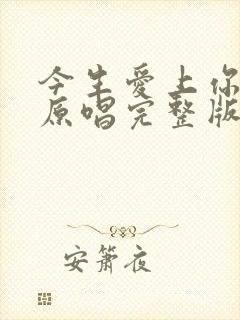 今生爱上你
原唱完整版
安箫夜